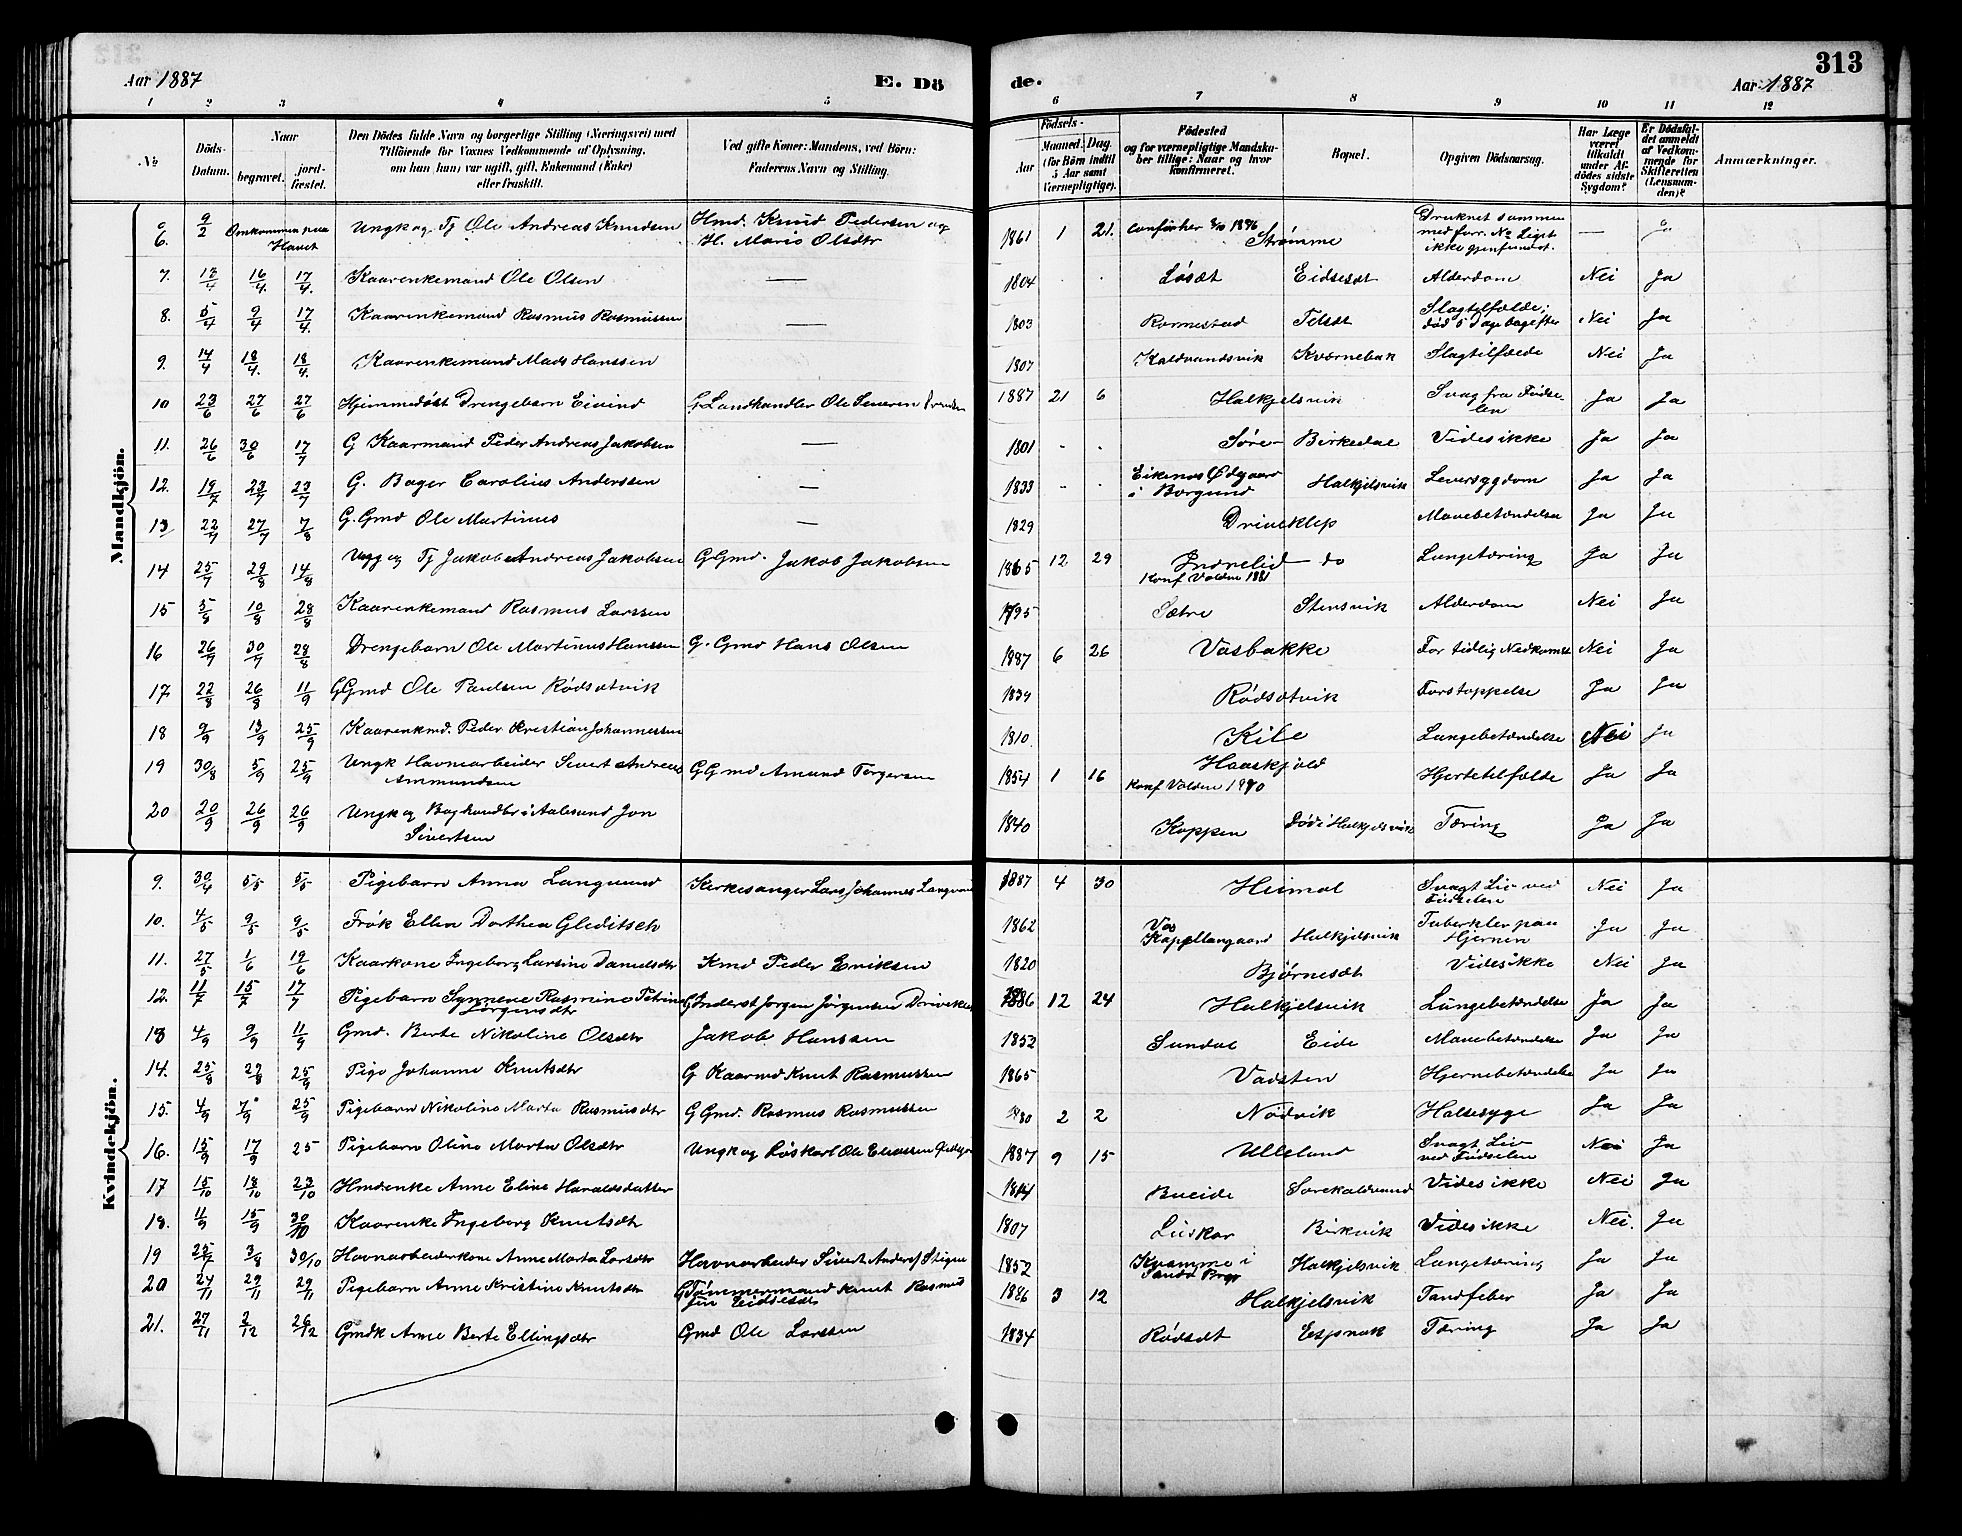 313
Aar 1887 E. Dö de. Aar 1887
1 2 3 4 5 6 7 8 9 10 11 12
No. Döds-Datum. Naar begravet. jordfæstet. Den Dödes fulde Navn og borgerlige Stilling (Næringsvei) med Tilföiende for Voxnes Vedkommende af Oplysning, om han (hun) var ugift, gift, Enkemand (Enke) eller fraskilt. Ved gifte Koner: Mandens, ved Börn: Faderens Navn og Stilling. Födsels- Aar Maaned. Dag (for Börn indtil 5 Aar samt Værnepligtige). Födested og for værnepligtige Mandskaber tillige: Naar og hvor konfirmeret. Bopæl. Opgiven Dödsaarsag. Har Læge været tilkaldt under Afdödes sidste Sygdom? Er Dödsfaldet anmeldt af Vedkommende for Skifteretten (Lensmanden)? Anmærkninger.
Mandkjön.
6. 9/2 Omkommen paa Havet Ungk og Fg Ole Andreas Knudsen Hmd. Knud Pedersen og H. Marie Olsdtr 1861 1 21. Strømme Druknet sammen med forr. No Liget ikke gjenfundet. —
7. 13/4 16/4. 17/4. Kaarenkemand Ole Olsen — 1804 Løsæt Eidsesæt Alderdom Nei Ja
8. 5/4 9/4 17/4. Kaarenkemand Rasmus Rasmussen — 1803 Romestad Tilsæt Slagtilfælde; død 5 Dage bagefter Nei Ja
9. 14/4 18/4. 18/4. Kaarenkemand Mads Hanssen 1807 Kaldvandsvik Kværnebak Slagtilfælde Nei Ja
10 23/6 27/6 27/6 Hjemmedøbt Drengebarn Eivind G Landhandler Ole Severen 1887 21 6 Halkjelsvik Svag fra Fødselen Ja Ja
11. 26/6 30/6 17/7 G Kaarmand Peder Andreas Jakobsen — 1801 - Søre- Birkedal Vides ikke Ja Ja
12. 19/7 23/7 23/7 G. Bager Carolius Anderssen — 1833 - Eikenos Ødgaard i Borgund Halkjelsvik Leversygdom Ja Ja
13 22/7 27/7 7/8 G. Gmd Ole Martinus — 1829 Driveklep Mavebetændelse Ja Ja
14 25/7 29/8 14/8 Ungk og Fg Jakob Andreas Jakobsen G Gmd. Jakob Jakobsen 1865 12 29 Indrelid Konf Volden 1881 do Lungetæring Ja Ja
15 5/8 10/8 28/8 Kaarenkemand Rasmus Larssen 1795 Sætre Stensvik Alderdom Nei Ja
16 26/7 30/7 28/8 Drengebarn Ole Martinus Hanssen G. Gmd Hans Olsen 1887 6 26 Vasbakke For tidlig Nedkomst Nei Ja
17 22/8 26/8 11/9 G Gmd Ole Paulsen Rødsætvik 1834 Rødsætvik Forstoppelse Ja Ja
18 9/9 13/9 25/9 Kaarenkmd. Peder Kristian Johannessen 1810. Kile Lungebetændelse Nei Ja
19 30/8 5/9 25/9 Ungk Havnearbeider Sivert Andreas Ammundsen G Gmd Amund Torgersen 1854 1 16 Haaskjold Konf Volden 1870 Hjertetilfælde Ja Ja
20 20/9 26/9 26/9 Ungk og Boghandler i Aalesund Jon Sivertsen 1840 Koppen Død i Halkjelsvik Tæring Ja Ja
Kvindekjön.
9. 30/4 5/5 5/5 Pigebarn Anna Langvand Kirkesanger Lars Johannes Langvand 1887 4 30 Heimol Svagt Liv ved Fødselen Nei Ja
10. 4/5 9/5 9/5 Frøk Ellen Dorthea Gleditsch 1862 Vos Kapellangaard Halkjelsvik Tuberkler paa Hjernen Ja Ja
11. 27/5 1/6 19/6 Kaarkone Ingeborg Larsine Danielsdtr Kmd Peder Eriksen 1820 Bjørnesæt Vides ikke Nei Ja
12. 11/7 15/7 17/7 Pigebarn Synneve Rasmine Petrine Jørgensdtr G Inderst Jørgen Jørgensen Driveklep 1886 12 24 Halkjelsvik Lungebetændelse Ja Ja
13 4/9 9/9 11/9 Gmd. Berte Nikoline Olsdtr Jakob Hanssen 1852 Sundal Eide Mavebetændelse Ja Ja
14. 25/8 29/8 25/9 Pige Johanne Knutsdtr G Kaarmd Knut Rasmussen 1865 Vadsten Hjernebetændelse Ja Ja
15. 4/9 7/9 25/9 Pigebarn Nikoline Marta Rasmusdtr G Gmd. Rasmus Rasmussen 2 2 Nødvik Halsesyge Ja Ja
16. 15/9 17/9 25 Pigebarn Oline Marta Olsdtr Ungk og Løskarl Ole Eliassen 1887 9 15 Ulleland Svagt Liv ved Fødselen Nei Ja
17 15/10 18/10 23/10 Hmdenke Anne Eline Haraldsdatter 1814 Bueide Sørekaldvand Vides ikke Nei Ja
18. 11/9 15/9 30/10 Kaarenke Ingeborg Knutsdtr 1807 Liskor Birkvik Vides ikke Nei. Ja
19 25/7 3/8 30/10 Havnearbeiderkone Anne Marta Larsdtr Havnearbeider Sivert Anders Stigen 1852 Kvamme i Sande Halkjelsvik Lungetæring Ja Ja
20 24/11 29/11 29/11 Pigebarn Anne Kristine Knutsdtr G Tømmermand Knut Rasmus Eidsesæt 1886 3 12 Halkjelsvik Tandfeber Ja Ja
21. 27/11 2/12 26/12 Gmdk Anne Berte Ellingsdtr Gmd Ole Larssen 1834 Rødsæt Espenak Tæring Ja Ja